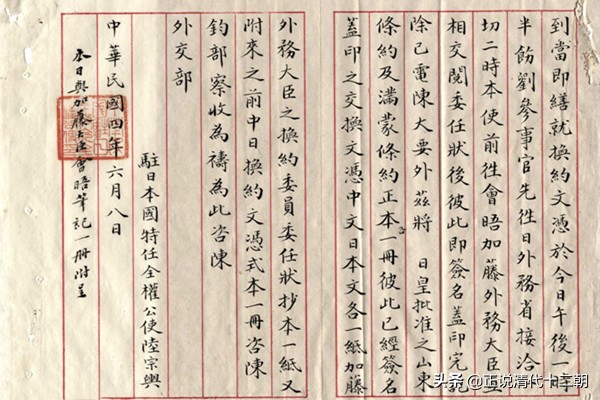 到當即繕就換約文憑於今日午後一時
半飭劉參事官先徃日外務省接洽一
切二時本使前徃會晤加藤外務大臣互
相交閱委任狀後彼此即簽名蓋印完訖
除已電陳大要外茲將 日皇批准之山東
條約及滿蒙條約正本一冊彼此已經簽名
蓋印之交換文憑中文日本文各一紙加藤
外務大臣之換約委員委任狀抄本一紙又
附來之前中日換約文憑式本一冊咨陳
鈞部察收為禱為此咨陳
外交部
駐日本國特任全權公使陸宗輿
中華民國四年六月八日
本日與加藤大臣會晤筆記一冊附呈
头条 @正说清代十二朝